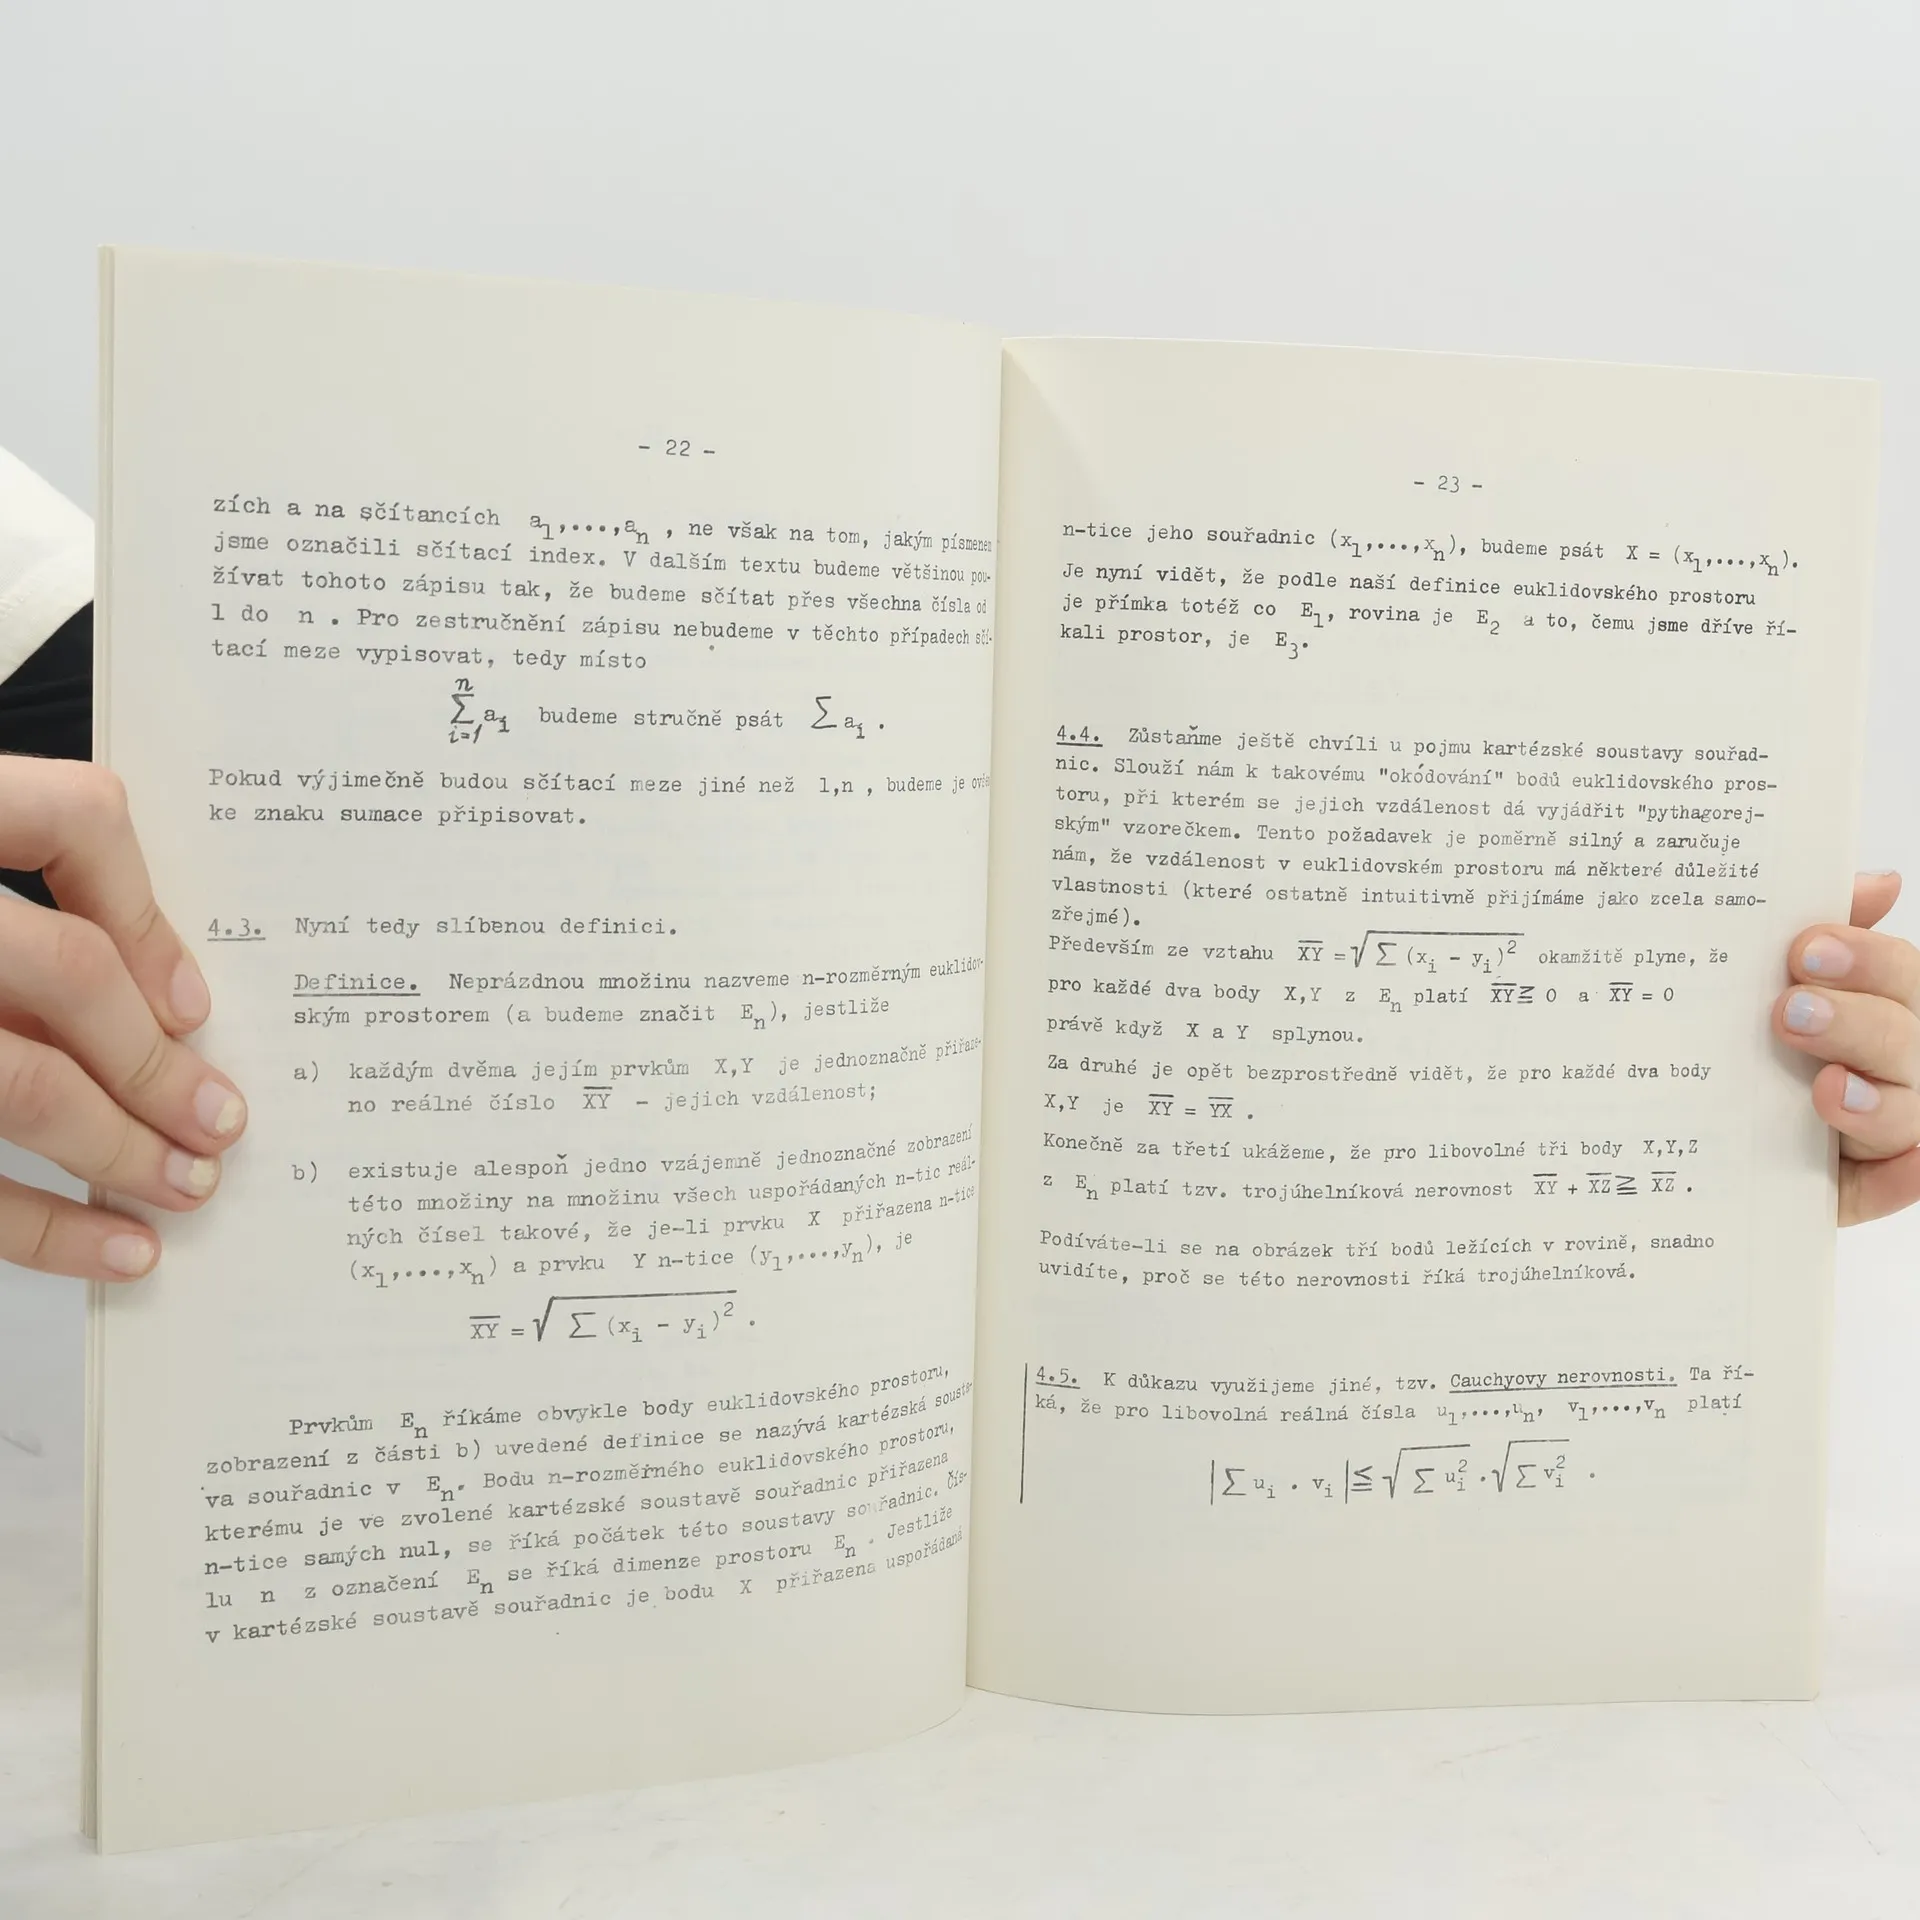 - 22 -
zích a na sčítancích a₁,...,aₙ , ne však na tom, jakým písmenem
jsme označili sčítací index. V dalším textu budeme většinou pou-
žívat tohoto zápisu tak, že budeme sčítat přes všechna čísla od
1 do n . Pro zestručnění zápisu nebudeme v těchto případech sčí-
tací meze vypisovat, tedy místo
n
∑ aᵢ budeme stručně psát ∑ aᵢ .
i=1
Pokud výjimečně budou sčítací meze jiné než 1,n , budeme je
ke znaku sumace připisovat.
4.3. Nyní tedy slíbenou definici.
Definice. Neprázdnou množinu nazveme n-rozměrným euklidov-
ským prostorem (a budeme značit Eₙ), jestliže
a) každým dvěma jejím prvkům X,Y je jednoznačně přiřaze-
no reálné číslo X̅Y̅ - jejich vzdálenost;
b) existuje alespoň jedno vzájemně jednoznačné zobrazení
této množiny na množinu všech uspořádaných n-tic reál-
ných čísel takové, že je-li prvku X přiřazena n-tice
(x₁,...,xₙ) a prvku Y n-tice (y₁,...,yₙ), je
X̅Y̅ = √ ∑ (xᵢ - yᵢ)² .
Prvkům Eₙ říkáme obvykle body euklidovského prostoru,
zobrazení z části b) uvedené definice se nazývá kartézská sousta-
va souřadnic v Eₙ. Bodu n-rozměrného euklidovského prostoru,
kterému je ve zvolené kartézské soustavě souřadnic přiřazena
n-tice samých nul, se říká počátek této soustavy souřadnic. Čís-
lu n z označení Eₙ se říká dimenze prostoru Eₙ . Jestliže
v kartézské soustavě souřadnic je bodu X přiřazena uspořádaná
- 23 -
n-tice jeho souřadnic (x₁,...,xₙ), budeme psát X = (x₁,...,xₙ).
Je nyní vidět, že podle naší definice euklidovského prostoru
je přímka totéž co E₁, rovina je E₂ a to, čemu jsme dříve ří-
kali prostor, je E₃.
4.4. Zůstaňme ještě chvíli u pojmu kartézské soustavy souřad-
nic. Slouží nám k takovému "okódování" bodů euklidovského pros-
toru, při kterém se jejich vzdálenost dá vyjádřit "pythagorej-
ským" vzorečkem. Tento požadavek je poměrně silný a zaručuje
nám, že vzdálenost v euklidovském prostoru má některé důležité
vlastnosti (které ostatně intuitivně přijímáme jako zcela samo-
zřejmé).
Především ze vztahu X̅Y̅ = √ ∑ (xᵢ - yᵢ)² okamžitě plyne, že
pro každé dva body X,Y z Eₙ platí X̅Y̅ ≧ 0 a X̅Y̅ = 0
právě když X a Y splynou.
Za druhé je opět bezprostředně vidět, že pro každé dva body
X,Y je X̅Y̅ = Y̅X̅ .
Konečně za třetí ukážeme, že pro libovolné tři body X,Y,Z
z Eₙ platí tzv. trojúhelníková nerovnost X̅Y̅ + X̅Z̅ ≧ X̅Z̅ .
Podíváte-li se na obrázek tří bodů ležících v rovině, snadno
uvidíte, proč se této nerovnosti říká trojúhelníková.
4.5. K důkazu využijeme jiné, tzv. Cauchyovy nerovnosti. Ta ří-
ká, že pro libovolná reálná čísla u₁,...,uₙ, v₁,...,vₙ platí
|∑ uᵢ . vᵢ| ≦ √ ∑ uᵢ² . √ ∑ vᵢ² .